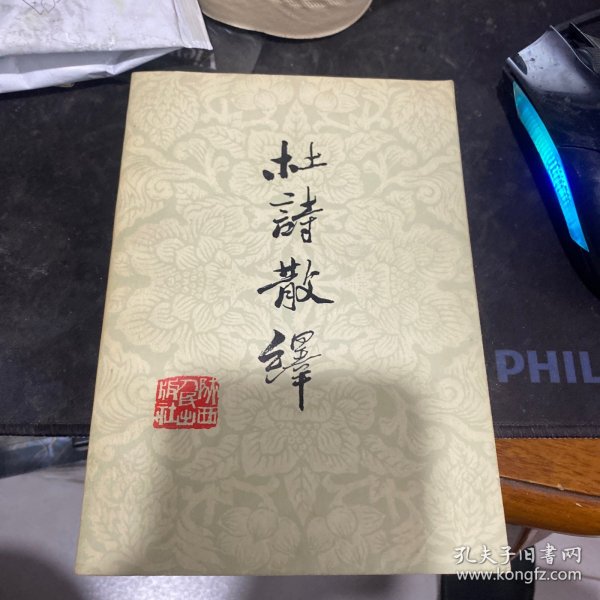 杜詩散繹
陕西
人民出
版社
PHIL
孔夫子旧書网
www.kongfz.com